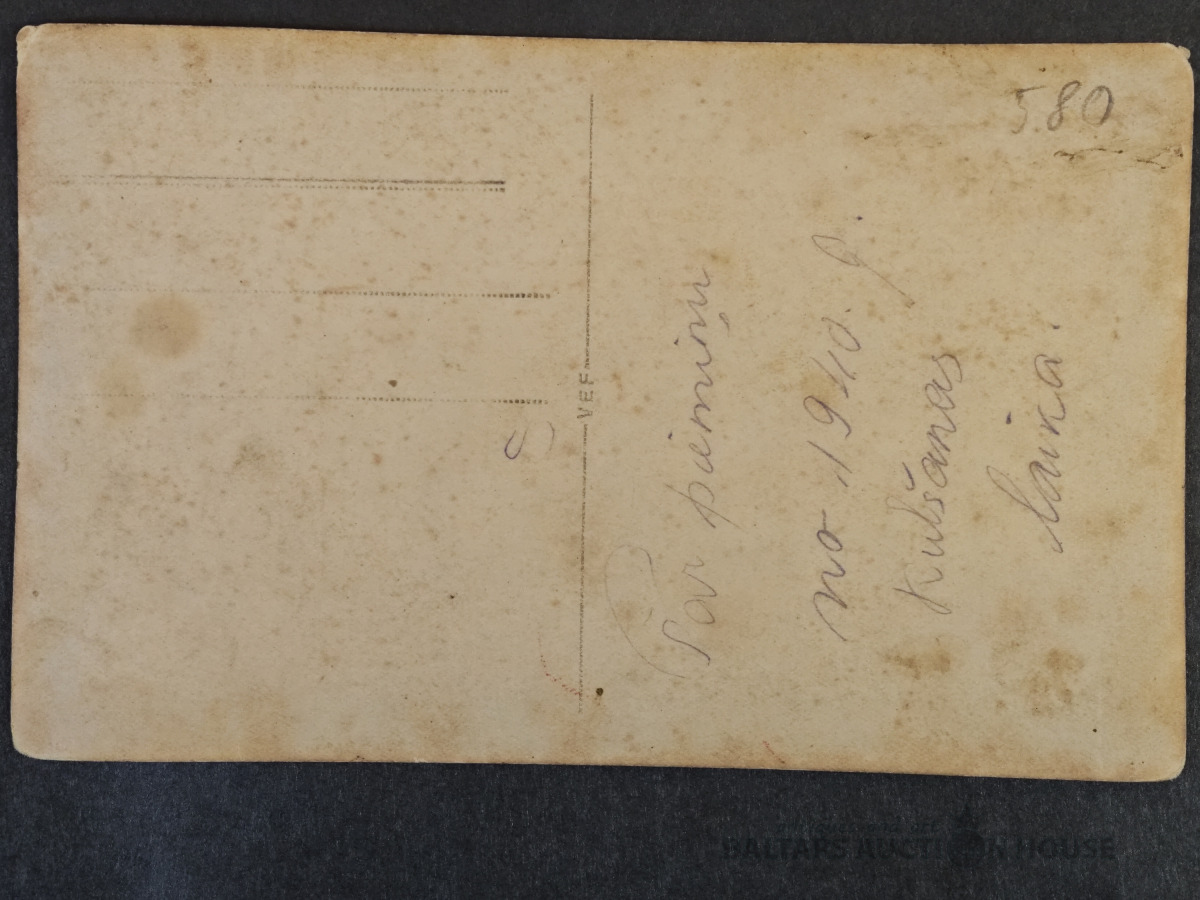 580
VEF
Par piemiņu
no 1940. g.
Kulšanas
laika.
BALTARS AUCTION HOUSE